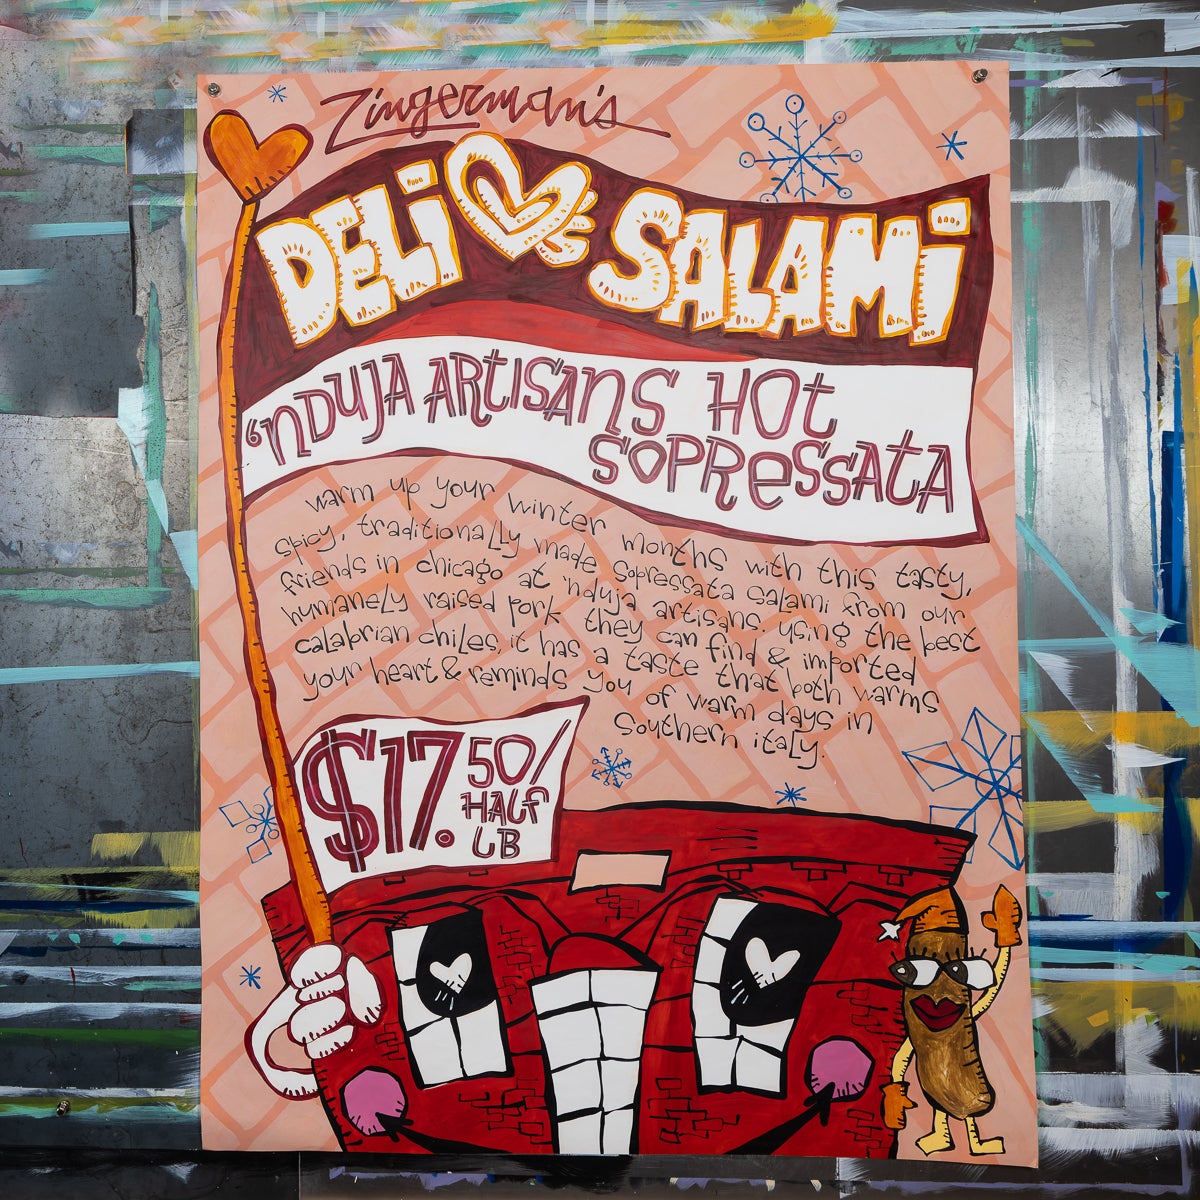 Zingerman's
DELi SALAMi
'NDUJA ARTISANS HOT
SOPRESSATA
warm up your winter months with this tasty,
spicy, traditionally made sopressata salami from our
friends in chicago at 'nduja artisans. using the best
humanely raised pork they can find & imported
calabrian chiles, it has a taste that both warms
your heart & reminds you of warm days in
southern italy.
$17.50/
HALF
LB